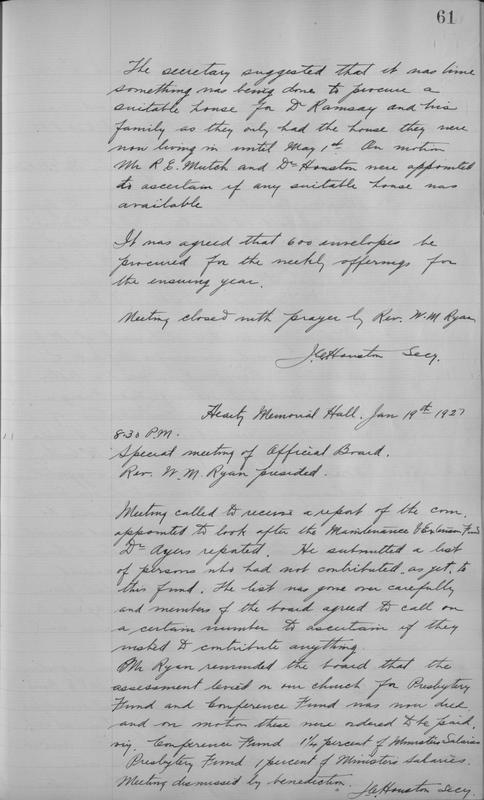 61
The secretary suggested that it was time
something was being done to procure a
suitable house for Dr Ramsay and his
family as they only had the house they were
now living in until May 1st. On motion
Mr R. E. Mutch and Dr Houston were appointed
to ascertain if any suitable house was
available
It was agreed that 600 envelopes be
procured for the weekly offerings for
the ensuing year.
Meeting closed with prayer by Rev. W. M. Ryan
J. C. Houston Secy.
Heartz Memorial Hall. Jan 19th 1927
8.30 P.M.
Special meeting of Official Board.
Rev. W. M. Ryan presided.
Meeting called to receive a report of the com.
appointed to look after the Maintenance & Extension Fund
Dr Ayers reported. He submitted a list
of persons who had not contributed, as yet, to
this fund. The list was gone over carefully
and members of the board agreed to call on
a certain number to ascertain if they
wished to contribute anything.
Mr Ryan reminded the board that the
assessment levied on our church for Presbytery
Fund and Conference Fund was now due
and on motion these were ordered to be paid.
viz. Conference Fund 1¼ percent of Ministers Salaries
Presbytery Fund 1 percent of Ministers salaries.
Meeting dismissed by benediction. J C Houston Secy.